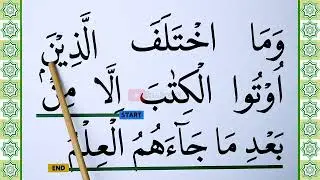 وَمَا اخْتَلَفَ الَّذِيْنَ
اُوْتُوا الْكِتٰبَ اِلَّا مِنْۢ
START
بَعْدِ مَا جَآءَهُمُ الْعِلْمُ
END